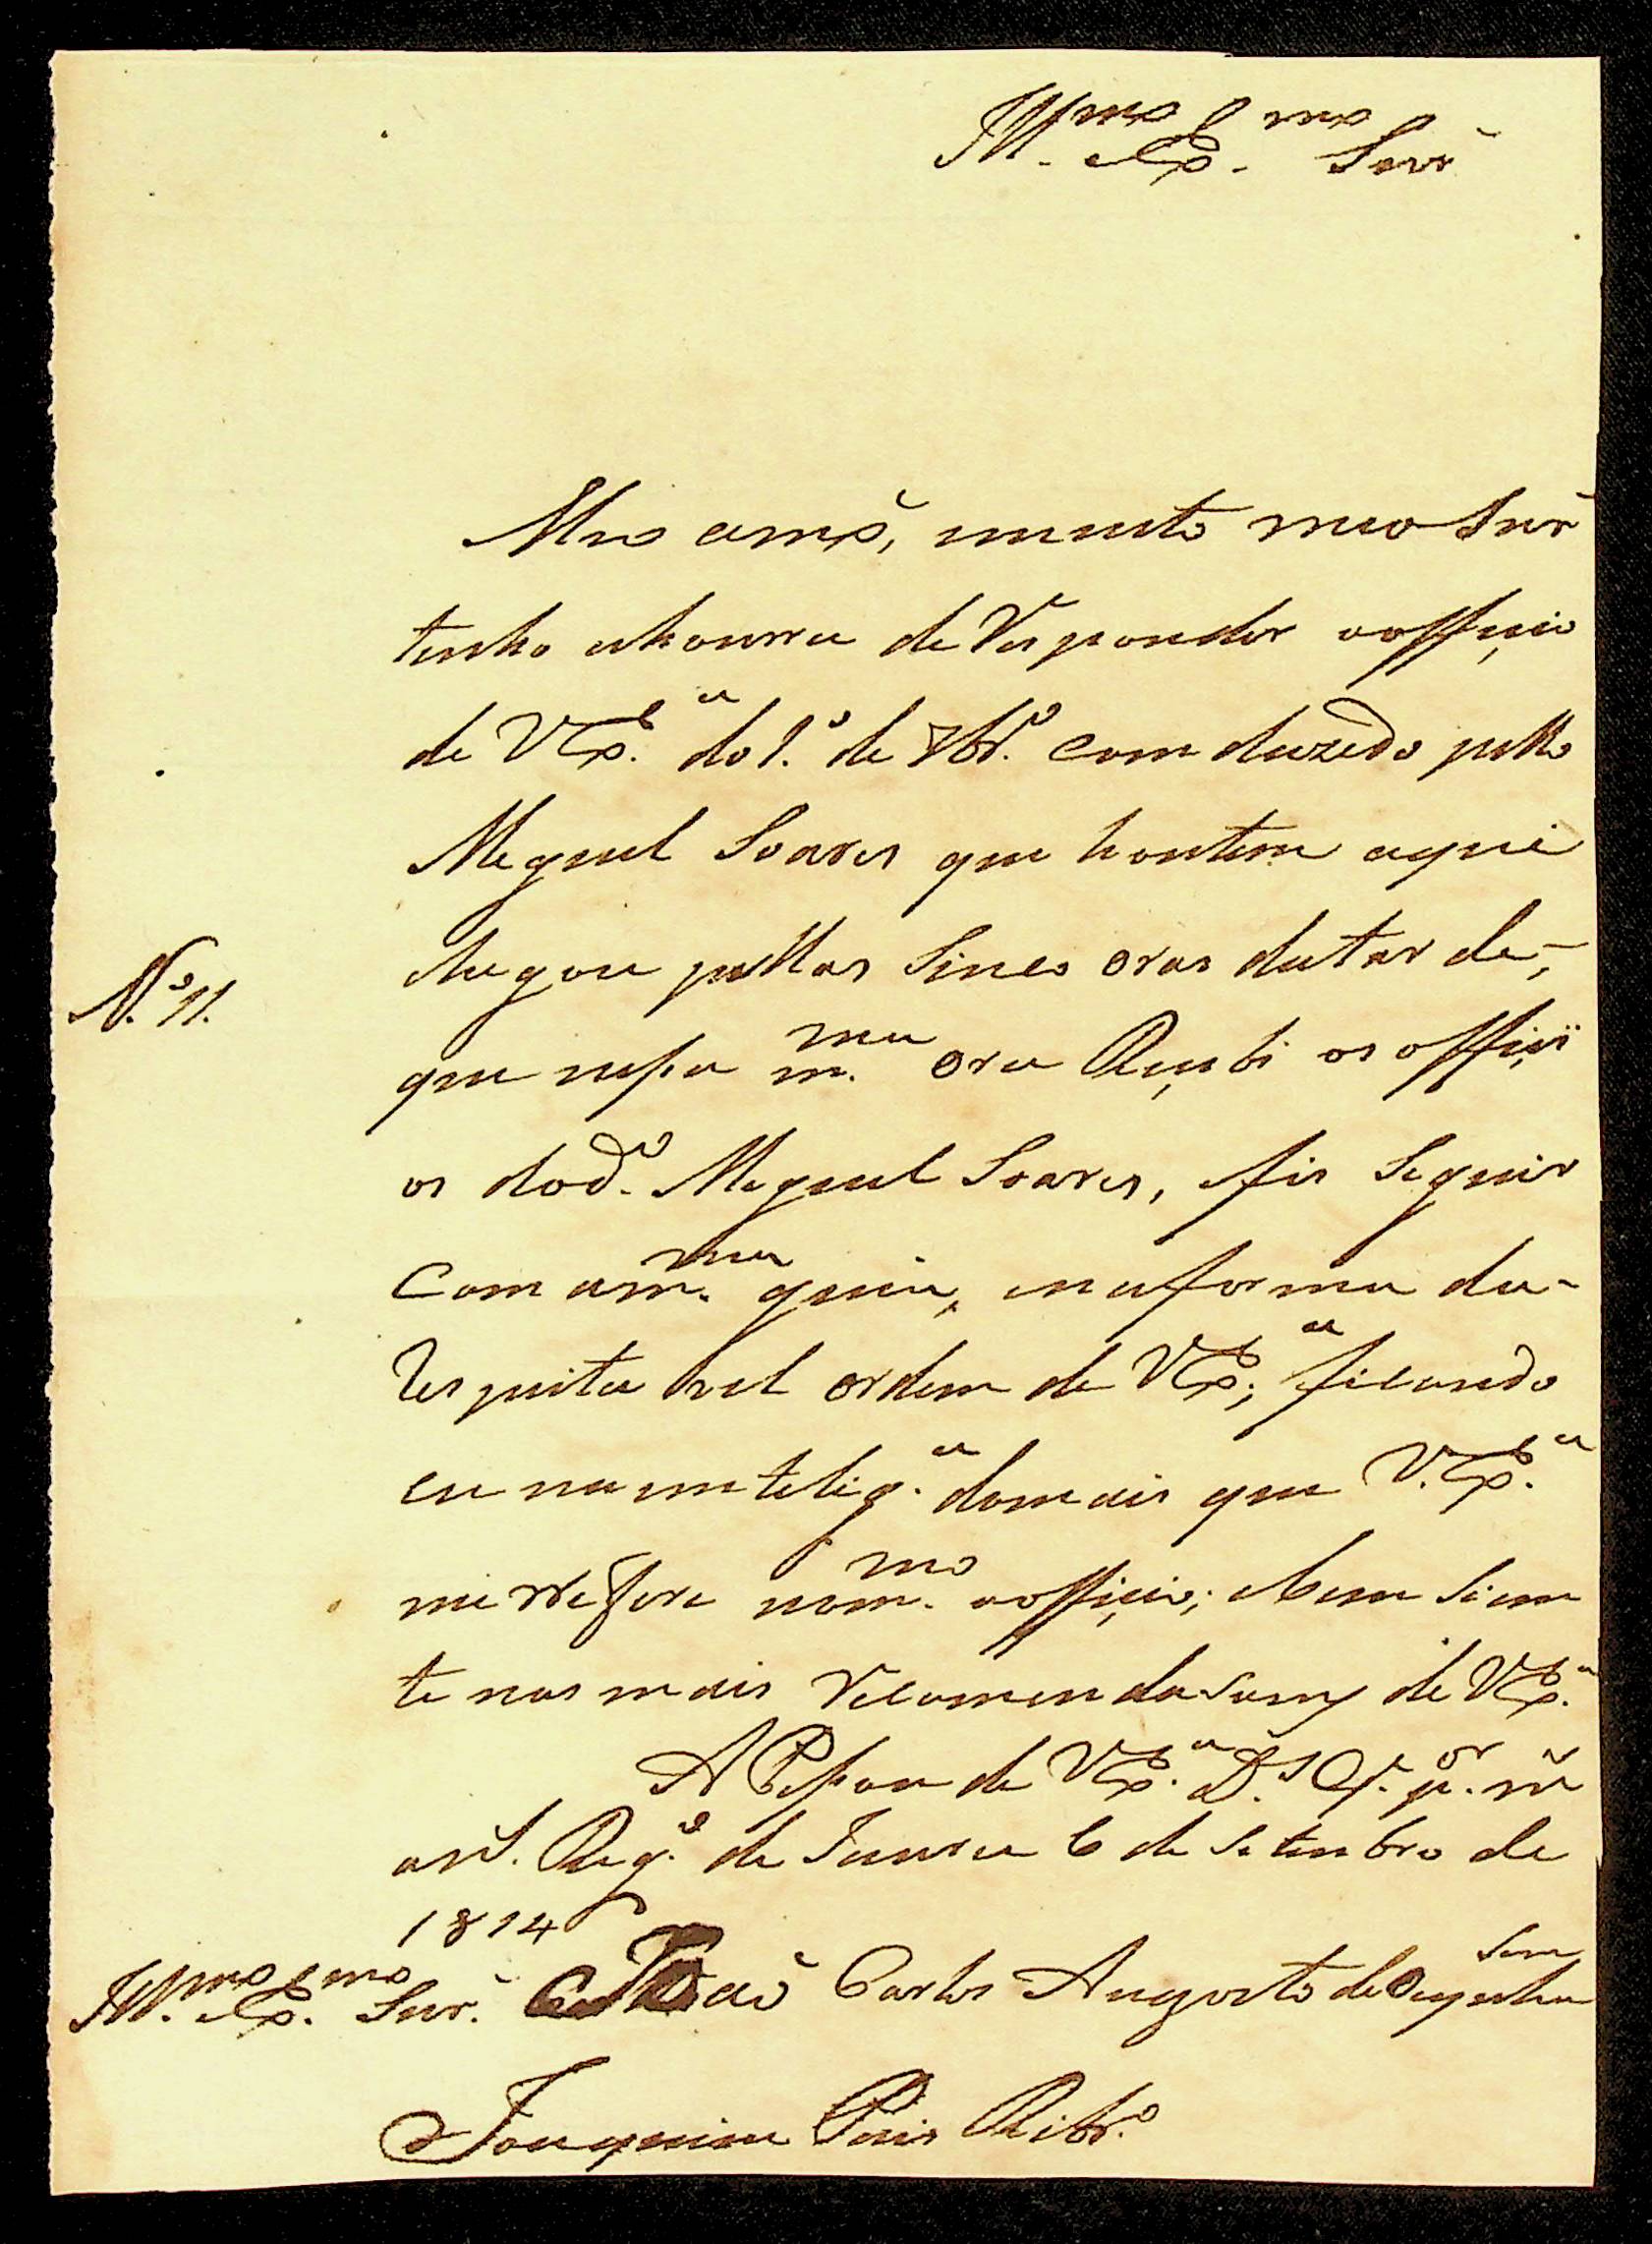 Ill.mo Ex.mo Snr̃
Meo amõ, muito meo Snr̃
tenho ahonrra de Responder aofficio
de VEx.a do 1.º de 7br.º comduzido pello
Meguel Soares que hontem aqui
chegou pellas Sinco oras datarde,
que nessa m.ma ora Recibi os offici
os dod.º Meguel Soares, efis Seguir
Com am.ma guia, enaforma da
Respeitavel ordem de VEx.a; ficando
eu naintelig.a domais que V.Ex.a
merrefere nom.mo officio; ebem Sien
te nas mais recomendasoins de VEx.a
A Pessoa de VEx.a D.s G.e p.or m̃
as̃. Reg.º de 6 de Setembro de
1814
Ill.mo Ex.mo Snr̃. João Carlos Augosto de Oeynhausem
Joaquim Pais Ribr.º
N.º 11.